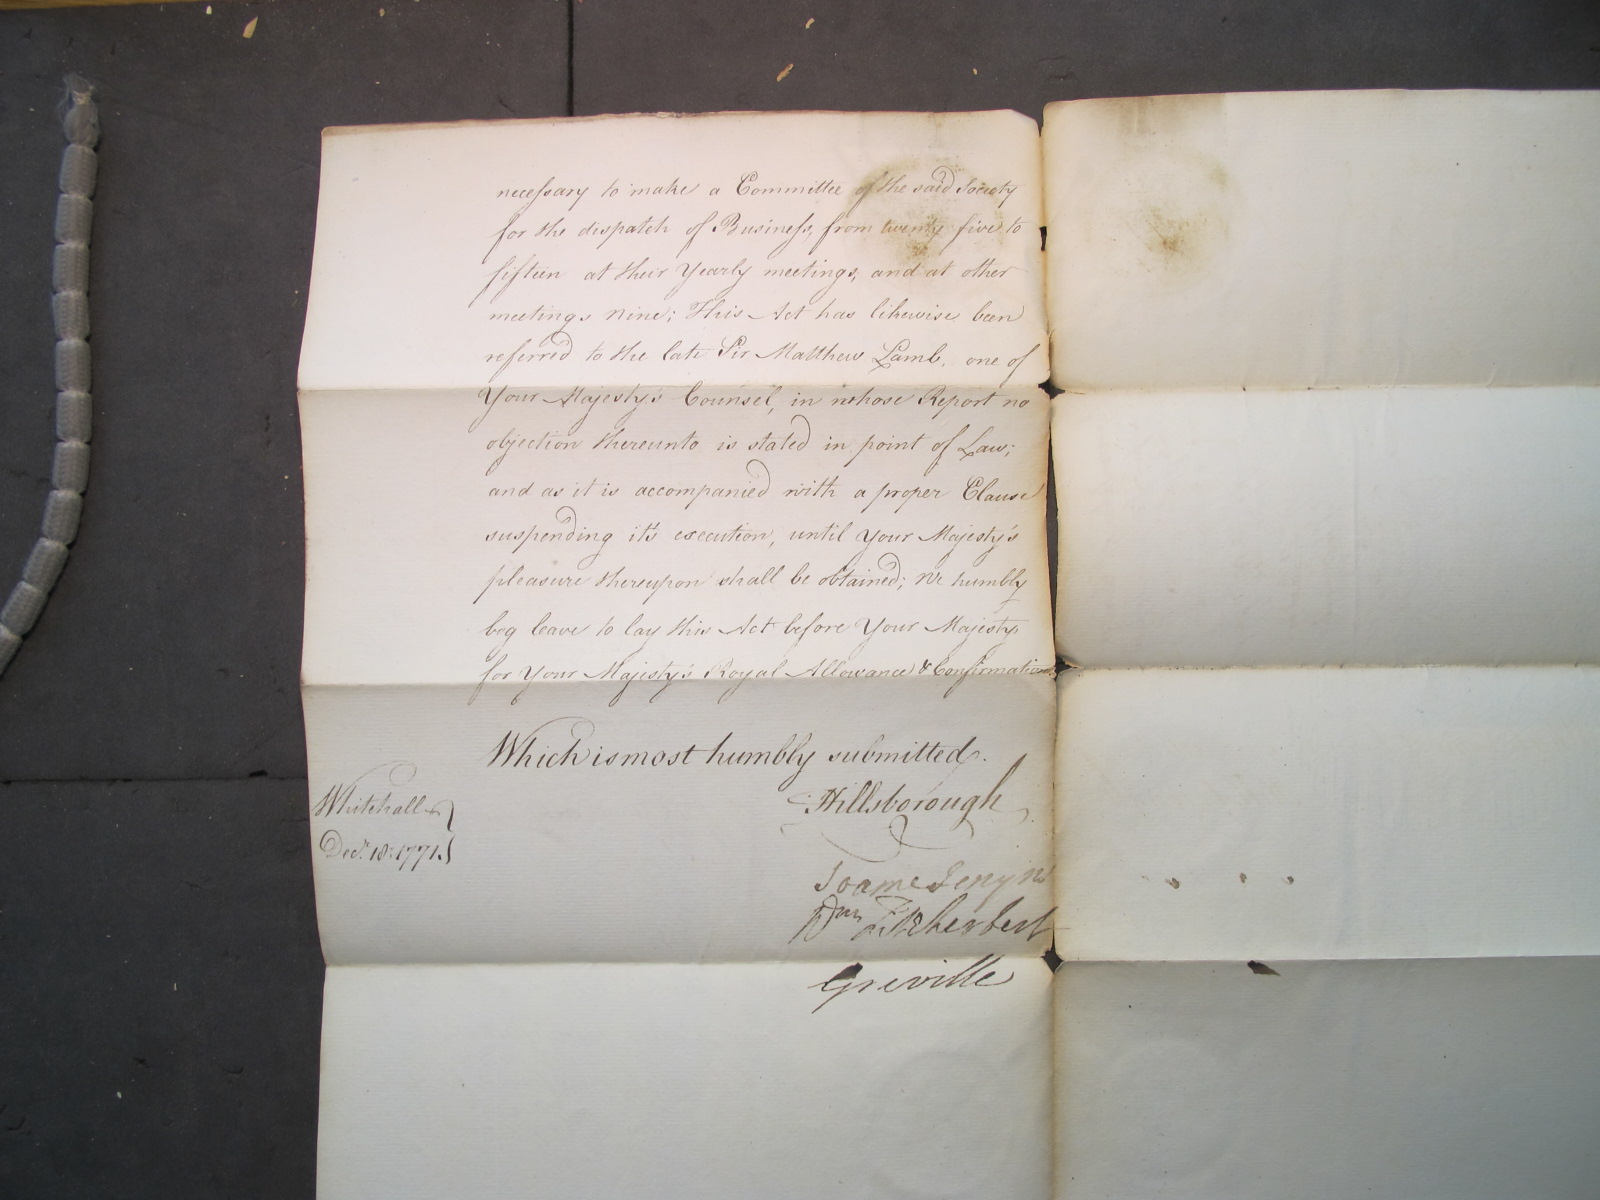 necessary to make a Committee of the said Society
for the dispatch of Business, from twenty five to
fifteen at their Yearly meetings, and at other
meetings nine; This Act has likewise been
referred to the late Sir Matthew Lamb, one of
Your Majesty's Counsel, in whose Report no
objection thereunto is stated in point of Law;
and as it is accompanied with a proper Clause
suspending it's execution, until Your Majesty's
pleasure thereupon shall be obtained; we humbly
beg leave to lay this Act before Your Majesty
for Your Majesty's Royal Allowance & Confirmation
Which is most humbly submitted.
Hillsborough
Whitehall
Decr. 18: 1771.
Soame Jenyns
Wm Fitzherbert
Greville